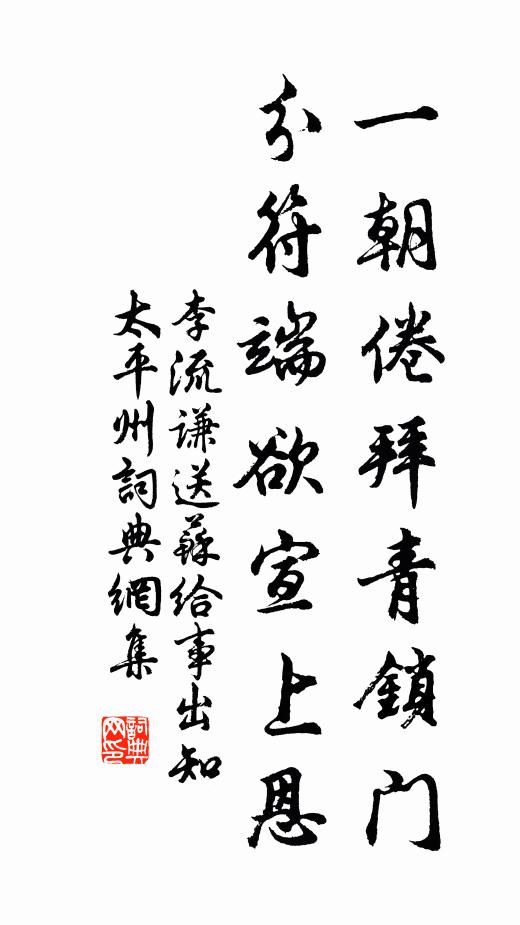 一朝倦拜青鎖门
分符端欲宣上恩
李流谦送蘇给事出知
太平州詞典網集
詞典网印